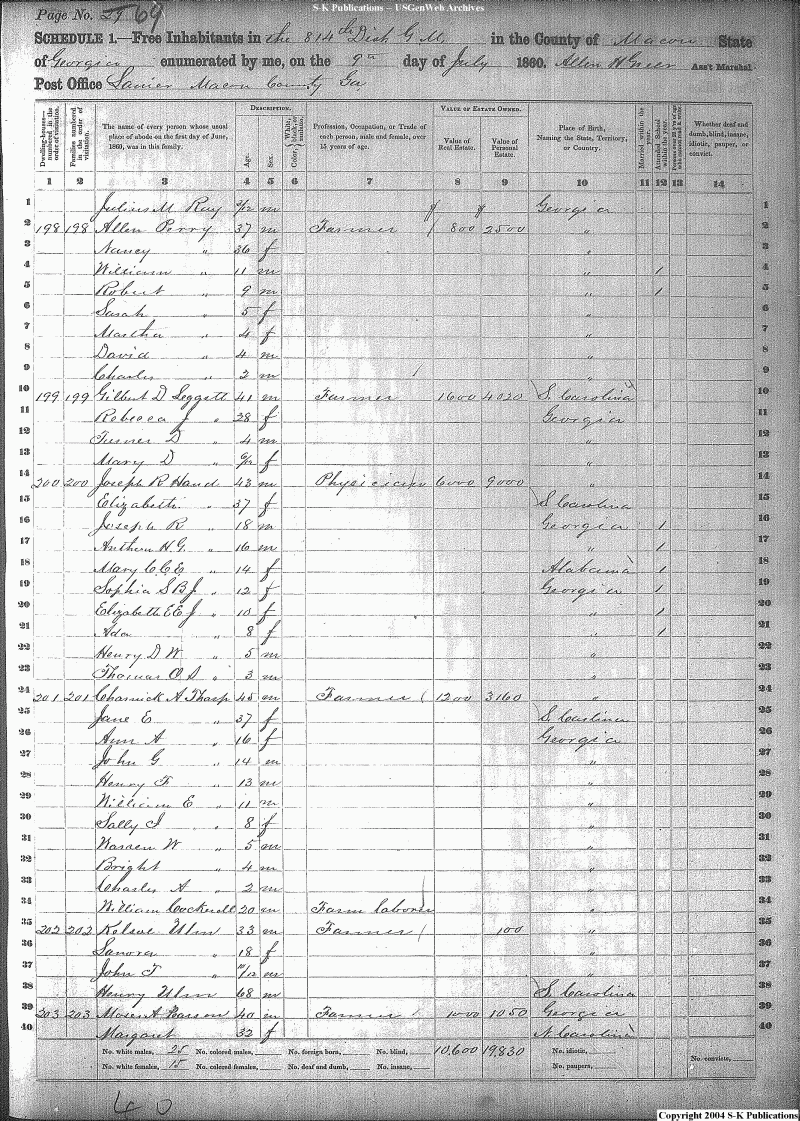 S-K Publications – USGenWeb Archives
Page No. 69
SCHEDULE 1.—Free Inhabitants in the 814th Dist G M. in the County of Macon State
of Georgia enumerated by me, on the 9th day of July 1860. Allen H Greer Ass't Marshal.
Post Office Lanier Macon County Ga
Dwelling-houses—numbered in the order of visitation.
Families numbered in the order of visitation.
The name of every person whose usual place of abode on the first day of June, 1860, was in this family.
DESCRIPTION.
Age.
Sex.
Color,
Profession, Occupation, or Trade of each person, male and female, over 15 years of age.
VALUE OF ESTATE OWNED.
Value of Real Estate.
Value of Personal Estate.
Place of Birth, Naming the State, Territory, or Country.
Married within the year.
Attended School within the year.
Whether deaf and dumb, blind, insane, idiotic, pauper, or convict.
1 2 3 4 5 6 7 8 9 10 11 12 13 14
1 Julius M Ray 9/12 m Georgia 1
2 198 198 Allen Perry 37 m Farmer 800 2500 " 2
3 Nancy " 36 f " 3
4 William " 11 m " 1 4
5 Robert " 9 m " 1 5
6 Sarah " 5 f " 6
7 Martha " 4 f " 7
8 David " 4 m " 8
9 Charles " 2 m " 9
10 199 199 Gilbert D Leggett 41 m Farmer 1600 4020 S. Carolina 10
11 Rebecca J " 28 f Georgia 11
12 Turner D " 4 m " 12
13 Mary D " 9/12 f " 13
14 200 200 Joseph R Hand 43 m Physician 6000 9000 " 14
15 Elizabeth " 37 f S Carolina 15
16 Joseph R " 18 m Georgia 1 16
17 H. G. " 16 m " 1 17
18 Mary C C E " 14 f Alabama 1 18
19 Sophia S B J " 12 f Georgia 1 19
20 Elizabeth E E J " 10 f " 1 20
21 Ada " 8 f " 1 21
22 Henry D W " 5 m " 22
23 Thomas O S " 3 m " 23
24 201 201 Charnick A Tharp 45 m Farmer 1200 3160 " 24
25 Jane E " 37 f S. Carolina 25
26 Ann A " 16 f Georgia 26
27 John G " 14 m " 27
28 Henry F " 13 m " 28
29 William E " 11 m " 29
30 Sally J " 8 f " 30
31 Warren W " 5 m " 31
32 Bright " 4 m " 32
33 Charles A " 2 m " 33
34 William Cockerell 20 m Farm laborer " 34
35 202 202 Ulm 33 m Farmer 100 " 35
36 Lanora " 18 f " 36
37 John T " 11/12 m " 37
38 Henry Ulm 68 m S. Carolina 38
39 203 203 Moses A Pearson 40 m Farmer 1000 1050 Georgia 39
40 Margaret " 32 f N. Carolina 40
No. white males, 25 No. colored males, No. foreign born, No. blind, 10,600 19,830 No. idiotic, No. convicts,
No. white females, 15 No. colored females, No. deaf and dumb, No. insane, No. paupers,
40
Copyright 2004 S-K Publications